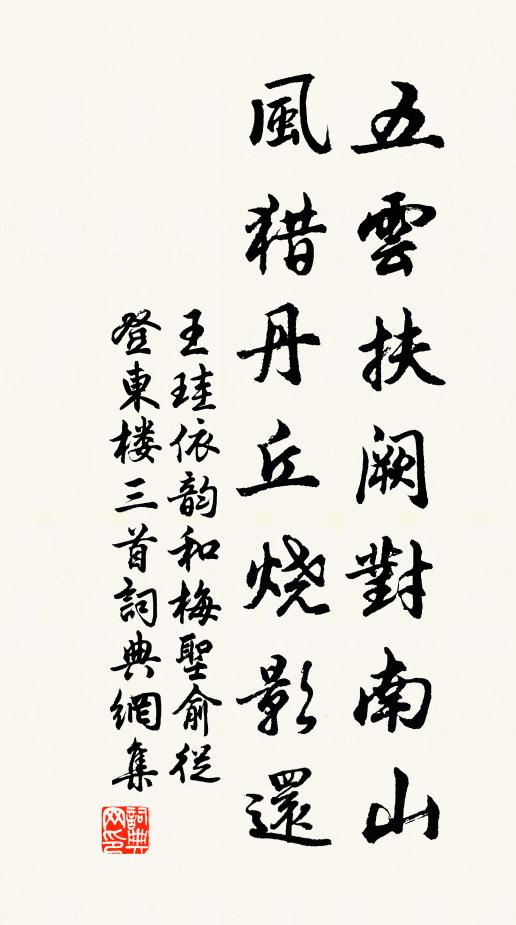 五雲扶阙對南山
風猎丹丘烧影還
王珪依韵和梅聖俞從
登東楼三首詞典網集
詞典网印